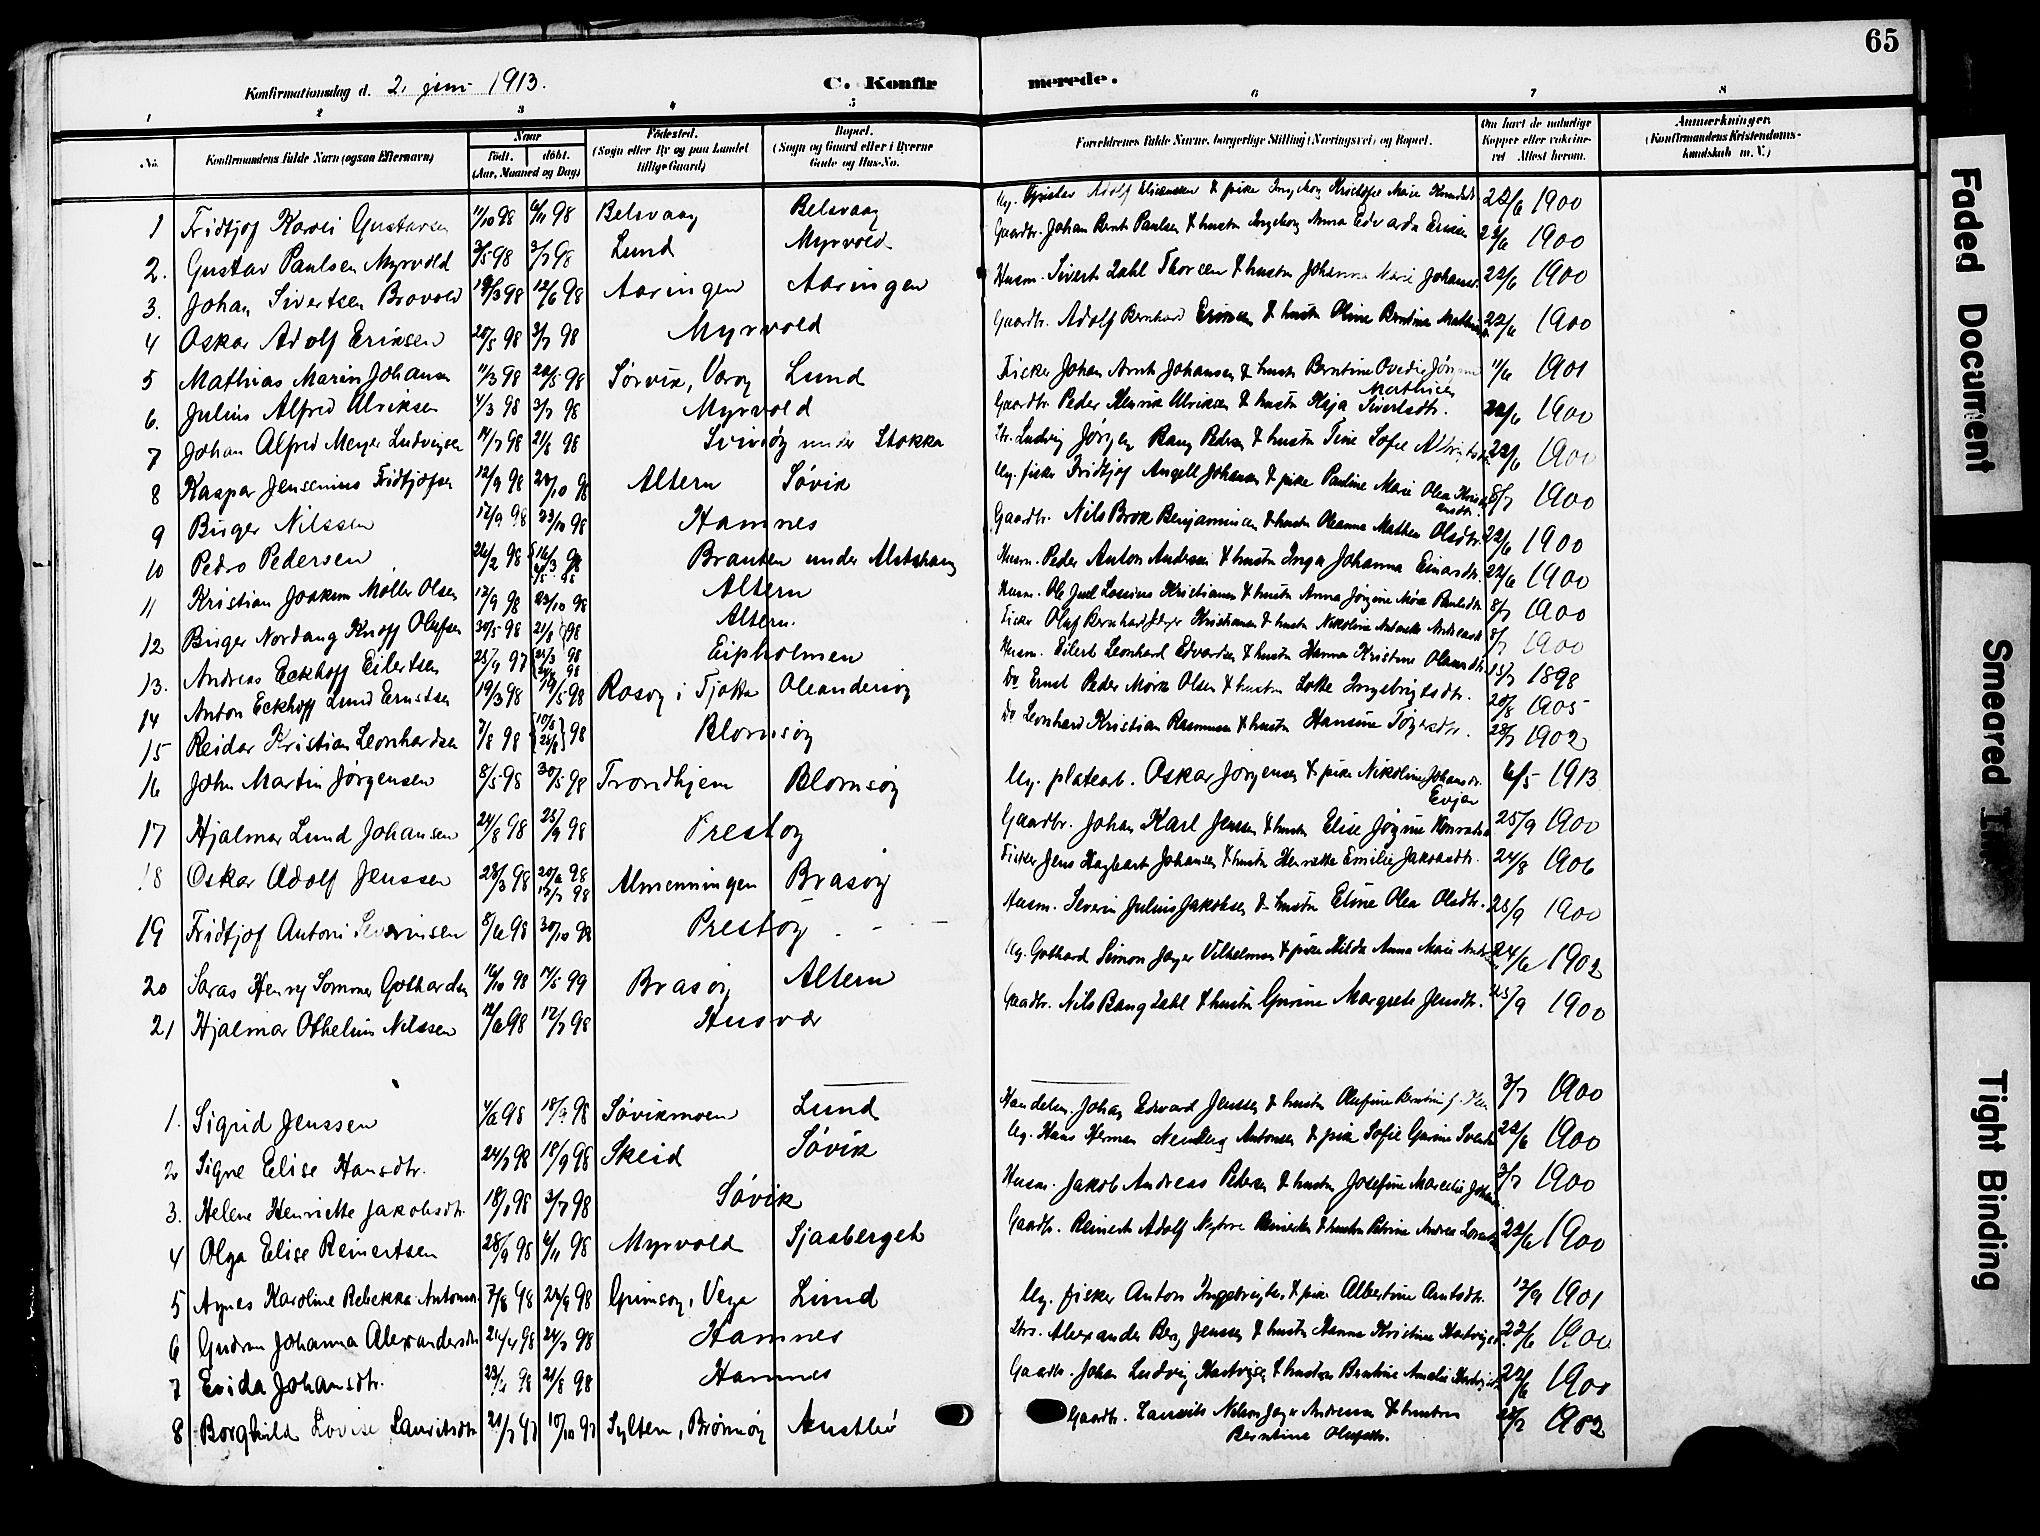 65
Konfirmationsdag d. 2. juni 1913.
C. Konfirmerede.
1 2 3 4 5 6 7 8
No. Konfirmandens fulde Navn (ogsaa Efternavn) Naar født. døbt. (Aar, Maaned og Dag) Fødested. (Sogn eller By og paa Landet tillige Gaard) Bopæl. (Sogn og Gaard eller i Byerne Gade og Hus-No. Forældrenes fulde Navne, borgerlige Stilling (Næringsvei) og Bopæl. Om havt de naturlige Kopper eller vaksineret Attest herom. Anmærkninger. (Konfirmandens Kristendomskundskab m. V.)
1 Fridtjof Karoli Gustavsen 11/10 98 6/11 98 Belsvaag Belsvaag Adolf & pike Ingeborg Marie 22/6 1900
2. Gustav Paulsen Myrvold 3/5 98 3/7 98 Lund Myrvold Gaardbr. Johan Bernt Paulsen & hustru Ingeborg Anna Edvarda 22/6 1900
3. Johan Sivertsen Brovold 19/3 98 12/6 98 Aaringen Aaringen Husm. Sivert Zahl Thorsen & hustru Johanna Marie 22/6 1900
4 Oskar Adolf Eriksen 20/5 98 3/7 98 Myrvold Gaardbr. Adolf Bernhard Eriksen & hustru Oline Berntine 22/6 1900
5 Mathias Marin Johansen 11/3 98 22/5 98 Sørvik, Varøy Lund Fisker Johan Arnt Johansen & hustru Berntine 11/6 1901
6. Julius Alfred Ulriksen 4/3 98 3/7 98 Myrvold Gaardbr. Peder Henrik Ulriksen & hustru Sivertsdtr. 22/6 1900
7 Johan Alfred Meyer Ludvigsen 14/7 98 21/8 98 under Stokka Ludvig Jørgen Bang Pedersen & hustru Tine Sofie 22/6 1900
8 Kaspar Jensenius Fridtjofsen 12/9 98 23/10 98 Altern Søvik Ug. fisker Fridtjof Angell Johansen & pike Pauline Marie Olea 8/7 1900
9 Birger Nilssen 12/9 98 23/10 98 Hamnes Gaardbr. Nils Brok Benjaminsen & hustru Oleanna Mathea Olsdtr. 22/6 1900
10 Pedro Pedersen 26/2 98 98 Brauten under Alstahaug Husm. Peder Anton Andersen & hustru Inga Johanna Einarsdtr. 22/6 1900
11 Kristian Joakim Møller Olsen 12/9 98 23/10 98 Altern Husm. Ole Juel Lossius Kristiansen & hustru Anna Jørgine Mørk 8/7 1900
12 Birger Nordang Knoff Olufsen 30/5 98 21/8 98 Altern. Fisker Oluf Bernhard Kristiansen & hustru Nikoline 8/7 1900
13. Andreas Eckhoff Eilertsen 25/9 97 98 Eipholmen Husm. Eilert Leonhard Edvardsen & hustru Hanna Kristine 15/7 1898
14 Anton Eckhoff Lund Ernstsen 19/3 98 19/5 98 Rosøy i Tjøtta Oleandersøy Do Ernst Peder Mørk Olsen & hustru Lotte Ingebrigtsdtr. 20/8 1905
15 Reidar Kristian Leonhardsen 7/8 98 98 Blomsøy Do Leonhard Kristian Rasmussen & hustru Hansine 28/7 1902
16 John Martin Jørgensen 8/5 98 30/5 98 Trondhjem Blomsøy Ug. platearb. Oskar Jørgensen & pike Nikoline Johansdtr. 6/5 1913
Evjen
17 Hjalmar Lund Johansen 24/8 98 25/9 98 Prestøy Gaardbr. Johan Karl Jenssen & hustru Elise Jørgine 25/9 1900
18 Oskar Adolf Jenssen 23/3 98 98 Almenningen Brasøy Fisker Jens Hagbart Johansen & hustru Henrikke Emilie Jakobsdtr. 24/8 1906
19 Fridtjof Antoni Severinsen 8/6 98 30/10 98 Prestøy Husm. Severin Julius Jakobsen & hustru Eline Olea Olsdtr. 25/9 1900
20 Saras Henry Sommer Gothardsen 16/10 98 14/5 99 Brasøy Altern Ug. Gothard Simon Jæger Vilhelmsen & pike Hilda Anna Marie 24/6 1902
21 Hjalmar Othelius Nilssen 12/6 98 17/7 98 Husvær Gaardbr. Nils Bang Zahl & hustru Gurine Margrete Jensdtr. 25/9 1900
1. Sigrid Jenssen 4/6 98 18/9 98 Søvikmoen Lund Handelsm. Johan Edvard Jenssen & hustru Olufine 3/7 1900
2 Signe Elise Hansdtr. 24/7 98 18/9 98 Skeid Søvik Ug. Hans Herman Antonsen & pike Sofie Gurine 22/6 1900
3. Helene Henriette Jakobsdtr. 18/1 98 3/7 98 Søvik Husm. Jakob Andreas Pedersen & hustru Josefine 3/7 1900
4 Olga Elise Reinertsen 28/9 98 6/11 98 Myrvold Sjaaberget Gaardbr. Reinert Adolf & hustru Petrine Andrea 22/6 1900
5 Agnes Karoline Rebekka Antonsdtr. 7/8 98 24/9 98 Grimsøy, Vega Lund Ug. fisker Anton Ingebrigtsen & pike Albertine Arntsdtr. 12/9 1901
6 Gudrun Johanna Alexandersdtr. 21/4 98 24/7 98 Hamnes Strs. Alexander Berg Jenssen & hustru Hanna Kristine 22/6 1900
7 Evida Johansdtr. 98 21/8 98 Hamnes Gaardbr. Johan Ludvig Hartvigsen & hustru Berntine Amalie 22/6 1900
8 Borghild Lovise Lauritsdtr. 21/7 97 10/10 97 Sylten, Brønnøy Austbø Gaardbr. Laurits Nelson Andreassen & hustru 1902
Berntine Olufsdtr.
Faded Document
Smeared Ink
Tight Binding